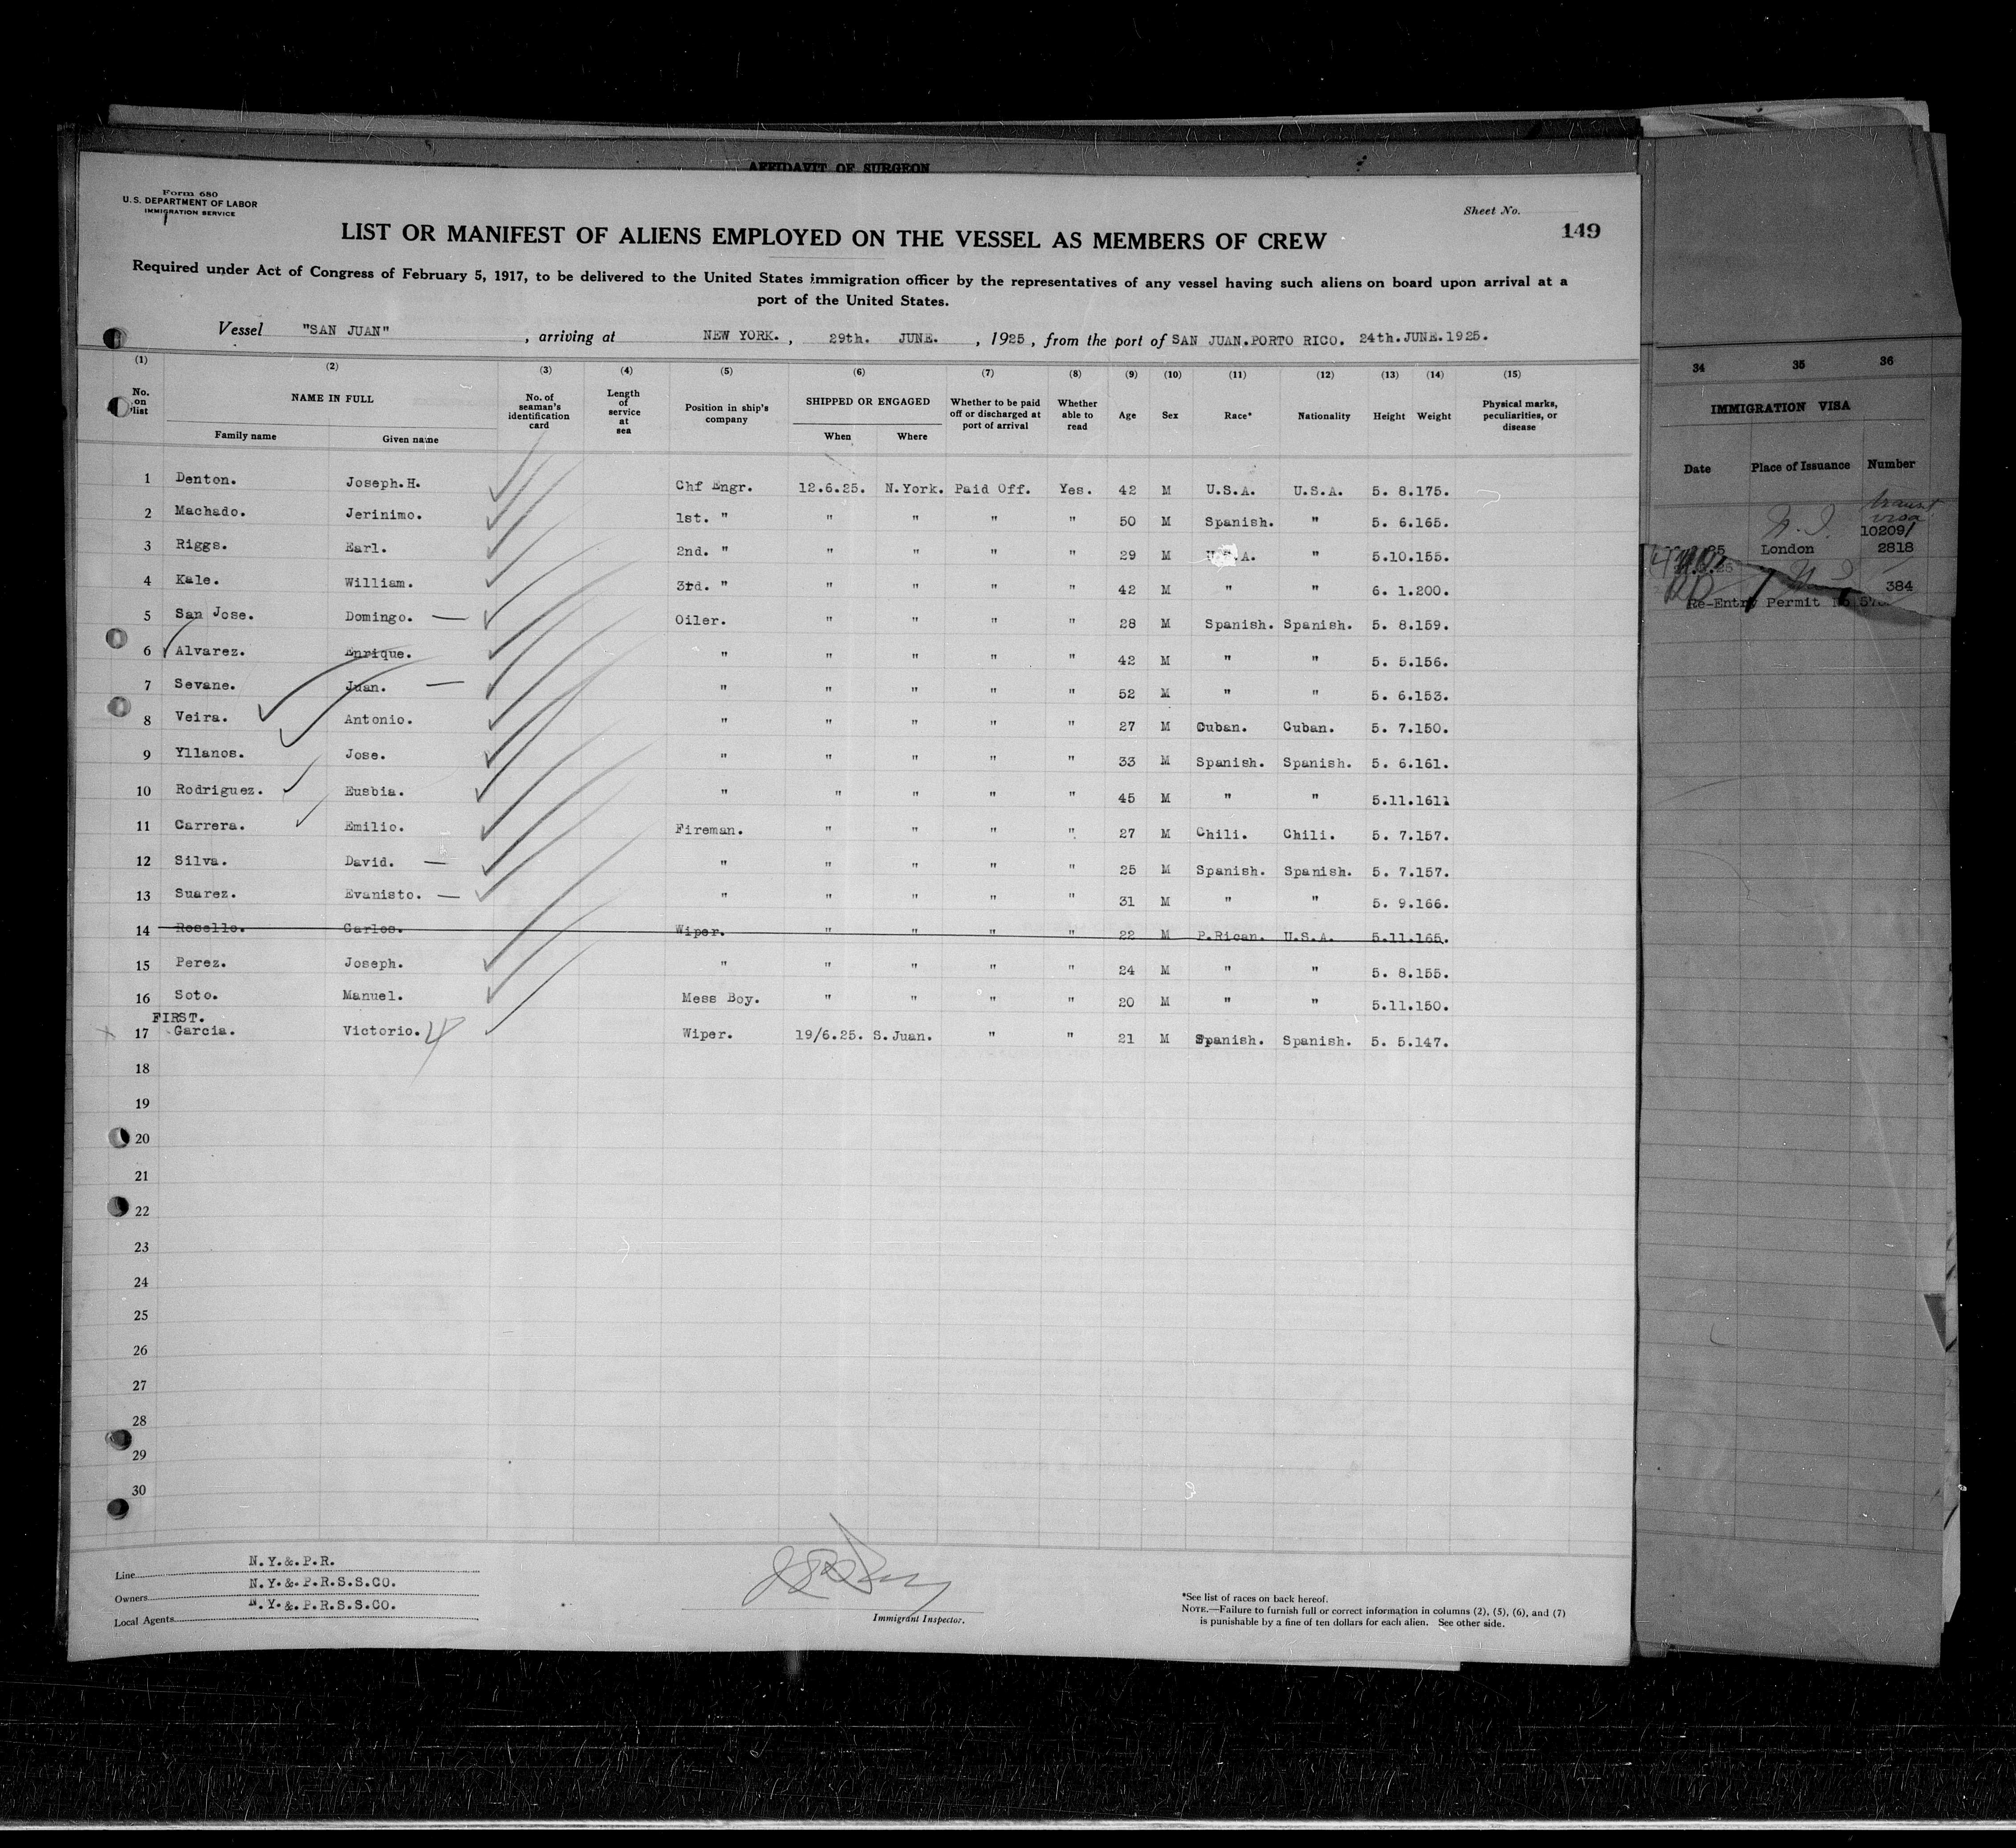 AFFIDAVIT OF SURGEON
Form 680
U. S. DEPARTMENT OF LABOR
IMMIGRATION SERVICE
Sheet No.
149
LIST OR MANIFEST OF ALIENS EMPLOYED ON THE VESSEL AS MEMBERS OF CREW
Required under Act of Congress of February 5, 1917, to be delivered to the United States immigration officer by the representatives of any vessel having such aliens on board upon arrival at a
port of the United States.
Vessel "SAN JUAN" , arriving at NEW YORK. , 29th. JUNE. , 1925 , from the port of SAN JUAN.PORTO RICO. 24th.JUNE.1925.
(1) (2) (3) (4) (5) (6) (7) (8) (9) (10) (11) (12) (13) (14) (15)
No. on list NAME IN FULL No. of seaman's identification card Length of service at sea Position in ship's company SHIPPED OR ENGAGED Whether to be paid off or discharged at port of arrival Whether able to read Age Sex Race* Nationality Height Weight Physical marks, peculiarities, or disease
Family name Given name When Where
1 Denton. Joseph.H. Chf Engr. 12.6.25. N.York. Paid Off. Yes. 42 M U.S.A. U.S.A. 5. 8.175.
2 Machado. Jerinimo. 1st. " " " " " 50 M Spanish. " 5. 6.165.
3 Riggs. Earl. 2nd. " " " " " 29 M U.S.A. " 5.10.155.
4 Kale. William. 3rd. " " " " " 42 M " " 6. 1.200.
5 San Jose. Domingo. — Oiler. " " " " 28 M Spanish. Spanish. 5. 8.159.
6 Alvarez. Enrique. " " " " " 42 M " " 5. 5.156.
7 Sevane. Juan. — " " " " " 52 M " " 5. 6.153.
8 Veira. Antonio. " " " " " 27 M Cuban. Cuban. 5. 7.150.
9 Yllanos. Jose. " " " " " 33 M Spanish. Spanish. 5. 6.161.
10 Rodriguez. Eusbia. " " " " " 45 M " " 5.11.1611
11 Carrera. Emilio. Fireman. " " " " 27 M Chili. Chili. 5. 7.157.
12 Silva. David. — " " " " " 25 M Spanish. Spanish. 5. 7.157.
13 Suarez. Evanisto. — " " " " " 31 M " " 5. 9.166.
14 Rosello. Carlos. Wiper. " " " " 22 M P.Rican. U.S.A. 5.11.165.
15 Perez. Joseph. " " " " " 24 M " " 5. 8.155.
16 Soto. Manuel. Mess Boy. " " " " 20 M " " 5.11.150.
FIRST.
17 Garcia. Victorio. Wiper. 19/6.25. S.Juan. " " 21 M Spanish. Spanish. 5. 5.147.
18
19
20
21
22
23
24
25
26
27
28
29
30
Line N.Y.&.P.R.
Owners N.Y.&.P.R.S.S.CO.
Local Agents N.Y.&.P.R.S.S.CO.
Immigrant Inspector.
*See list of races on back hereof.
NOTE.—Failure to furnish full or correct information in columns (2), (5), (6), and (7)
is punishable by a fine of ten dollars for each alien. See other side.
34 35 36
IMMIGRATION VISA
Date Place of Issuance Number
transit
visa
10209/
London 2818
384
Re-Entry Permit No